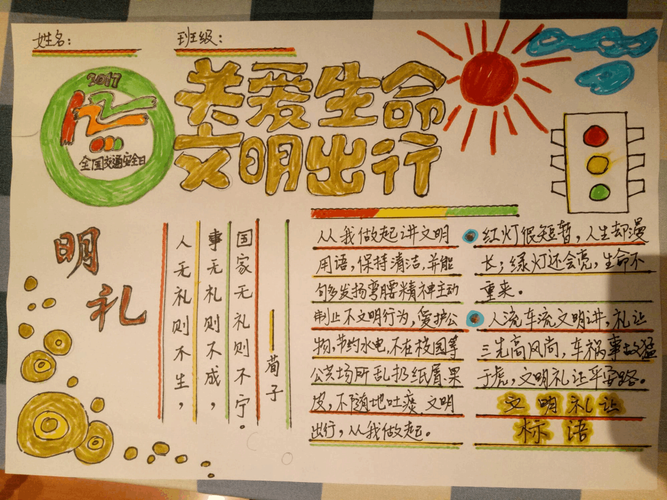 姓名：
班级：
2017
122
全国交通安全日
关爱生命
文明出行
明
礼
人无礼则不生，
事无礼则不成，
国家无礼则不宁。
——荀子
从我做起讲文明
用语，保持清洁，并能
勾多发扬弯腰精神主动
制止不文明行为，爱护公
物，节约水电，不在校园等
公共场所乱扔纸屑果
皮，不随地吐痰 文明
出行，从我做起。
红灯很短暂，人生却漫
长；绿灯还会亮，生命不
重来。
人流车流文明讲，礼让
三先高风尚，车祸事故猛
于虎，文明礼让平安路。
文明礼让
标语